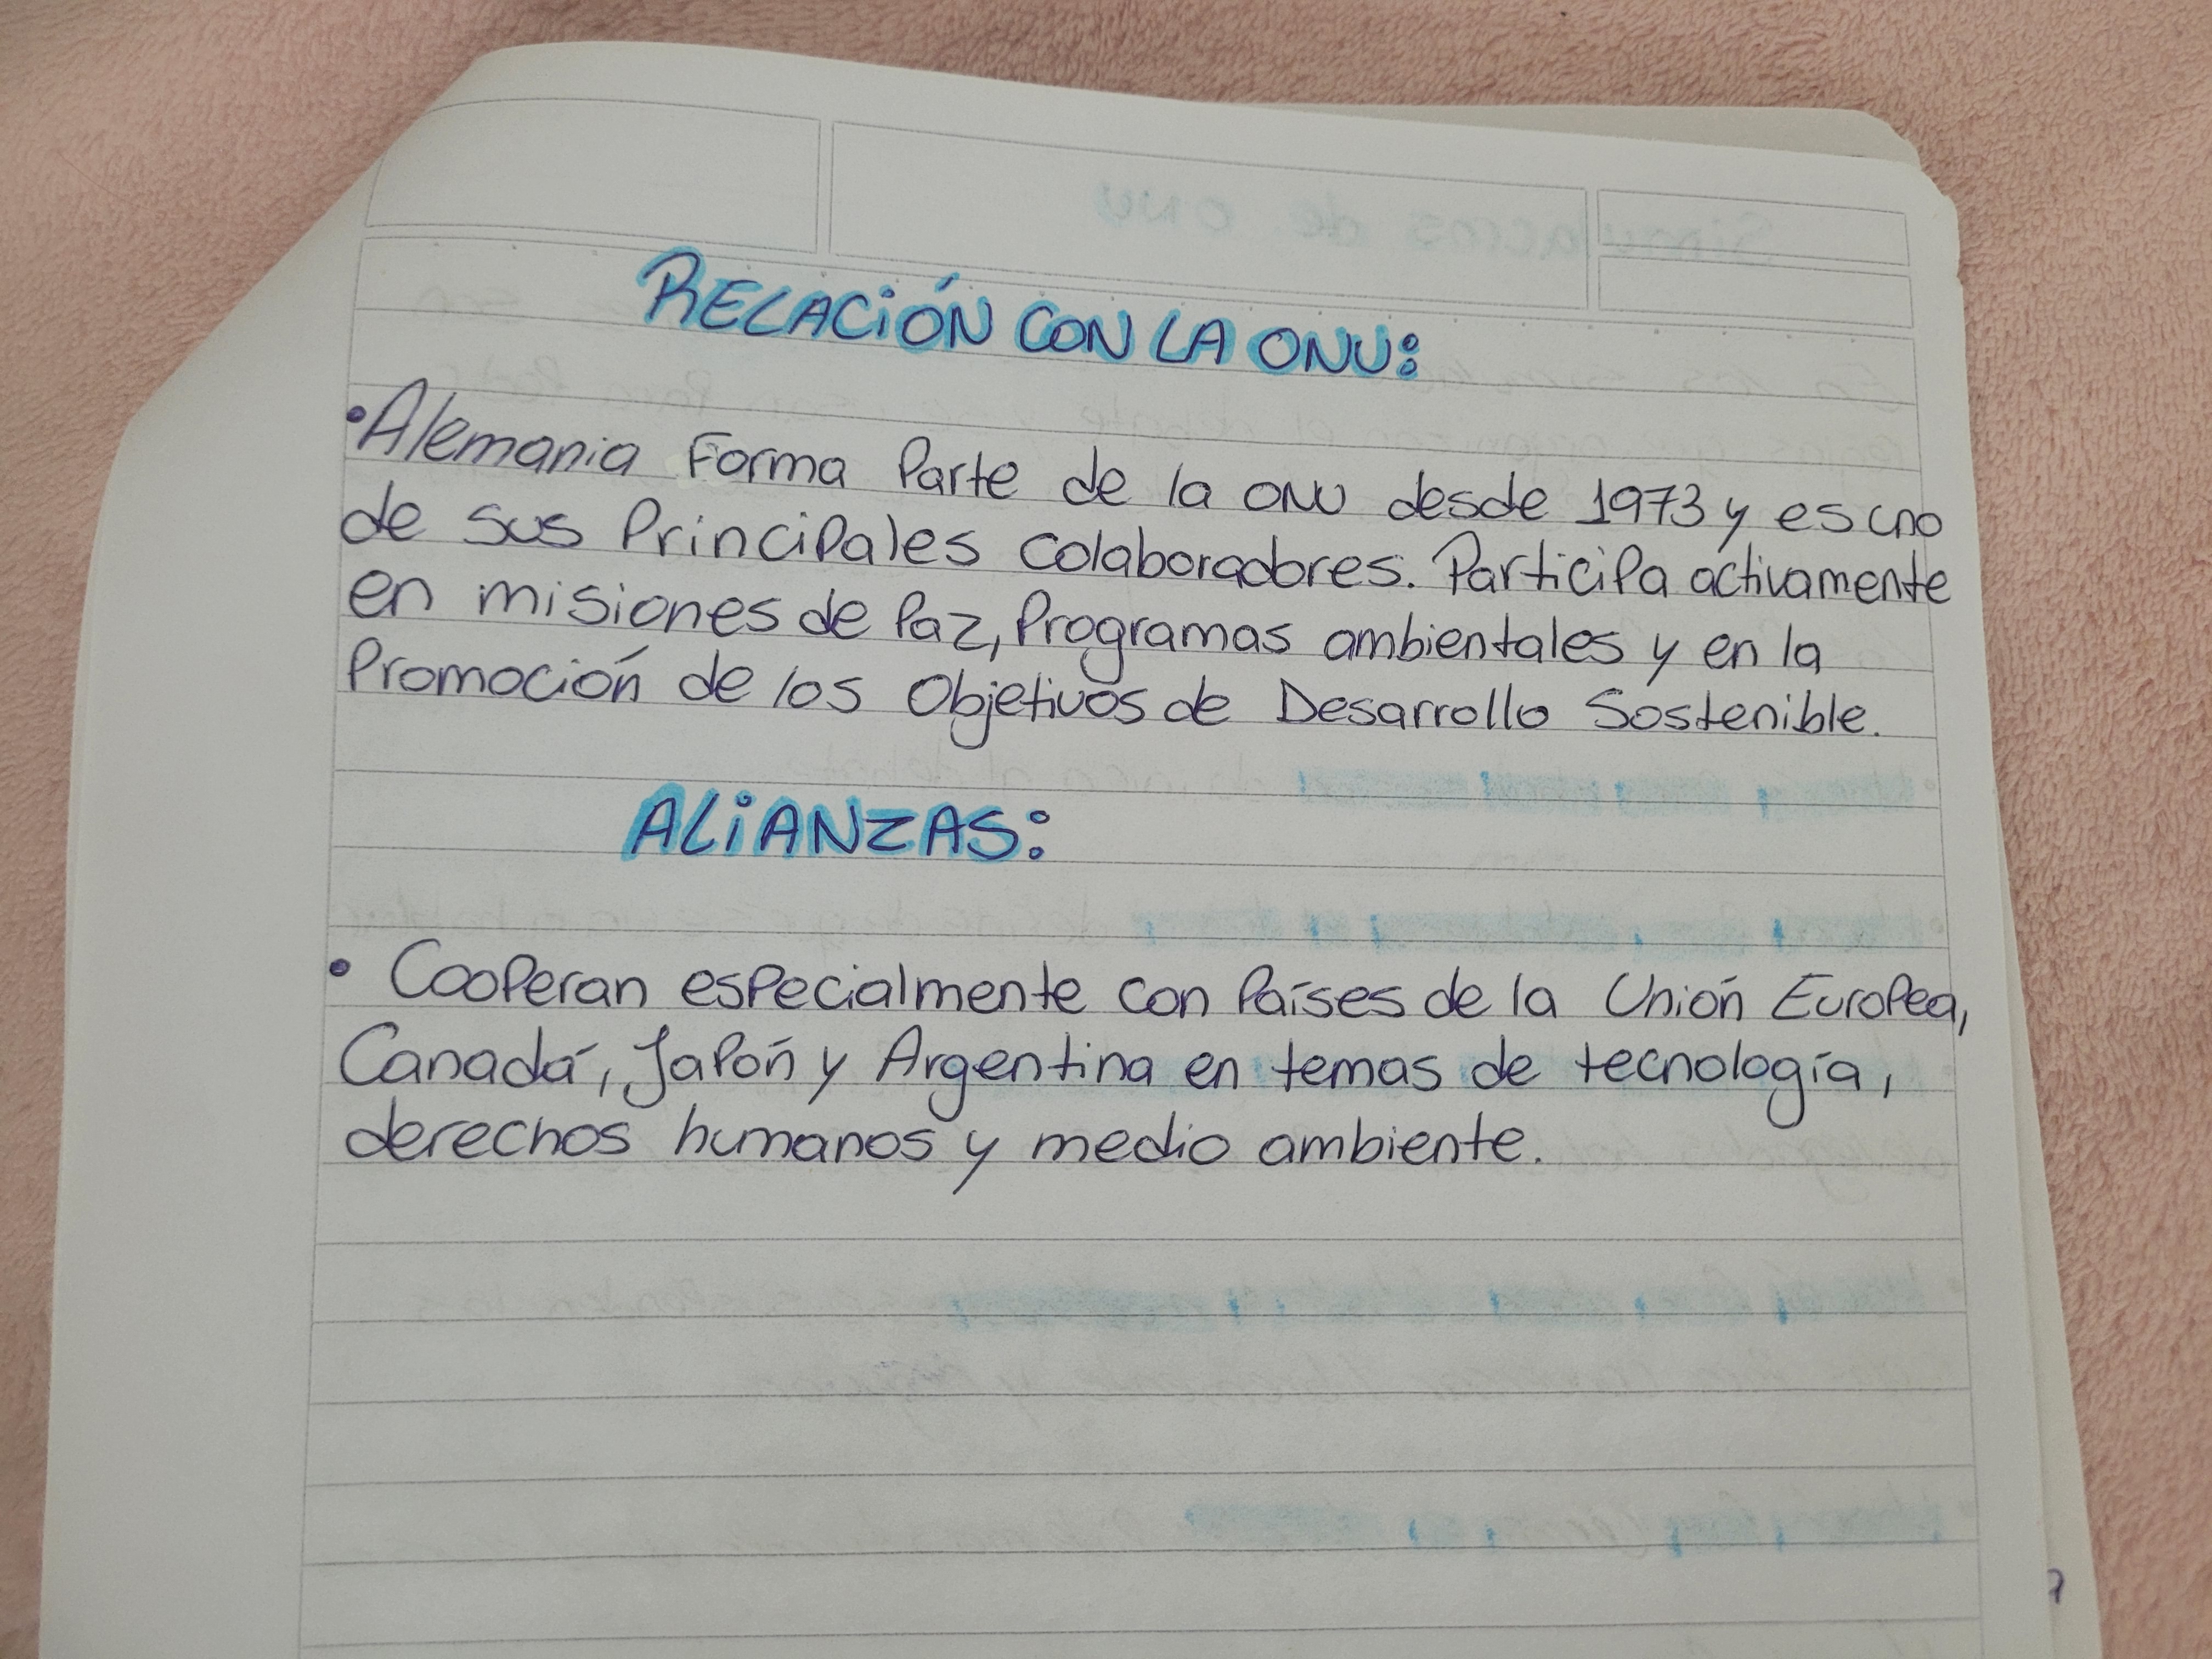 RELACIÓN CON LA ONU:
• Alemania Forma Parte de la ONU desde 1973 y es uno
de sus Principales colaboradores. Participa activamente
en misiones de Paz, Programas ambientales y en la
Promoción de los Objetivos de Desarrollo Sostenible.
ALIANZAS:
• Cooperan especialmente con Países de la Unión Europea,
Canadá, Japón y Argentina en temas de tecnología,
derechos humanos y medio ambiente.